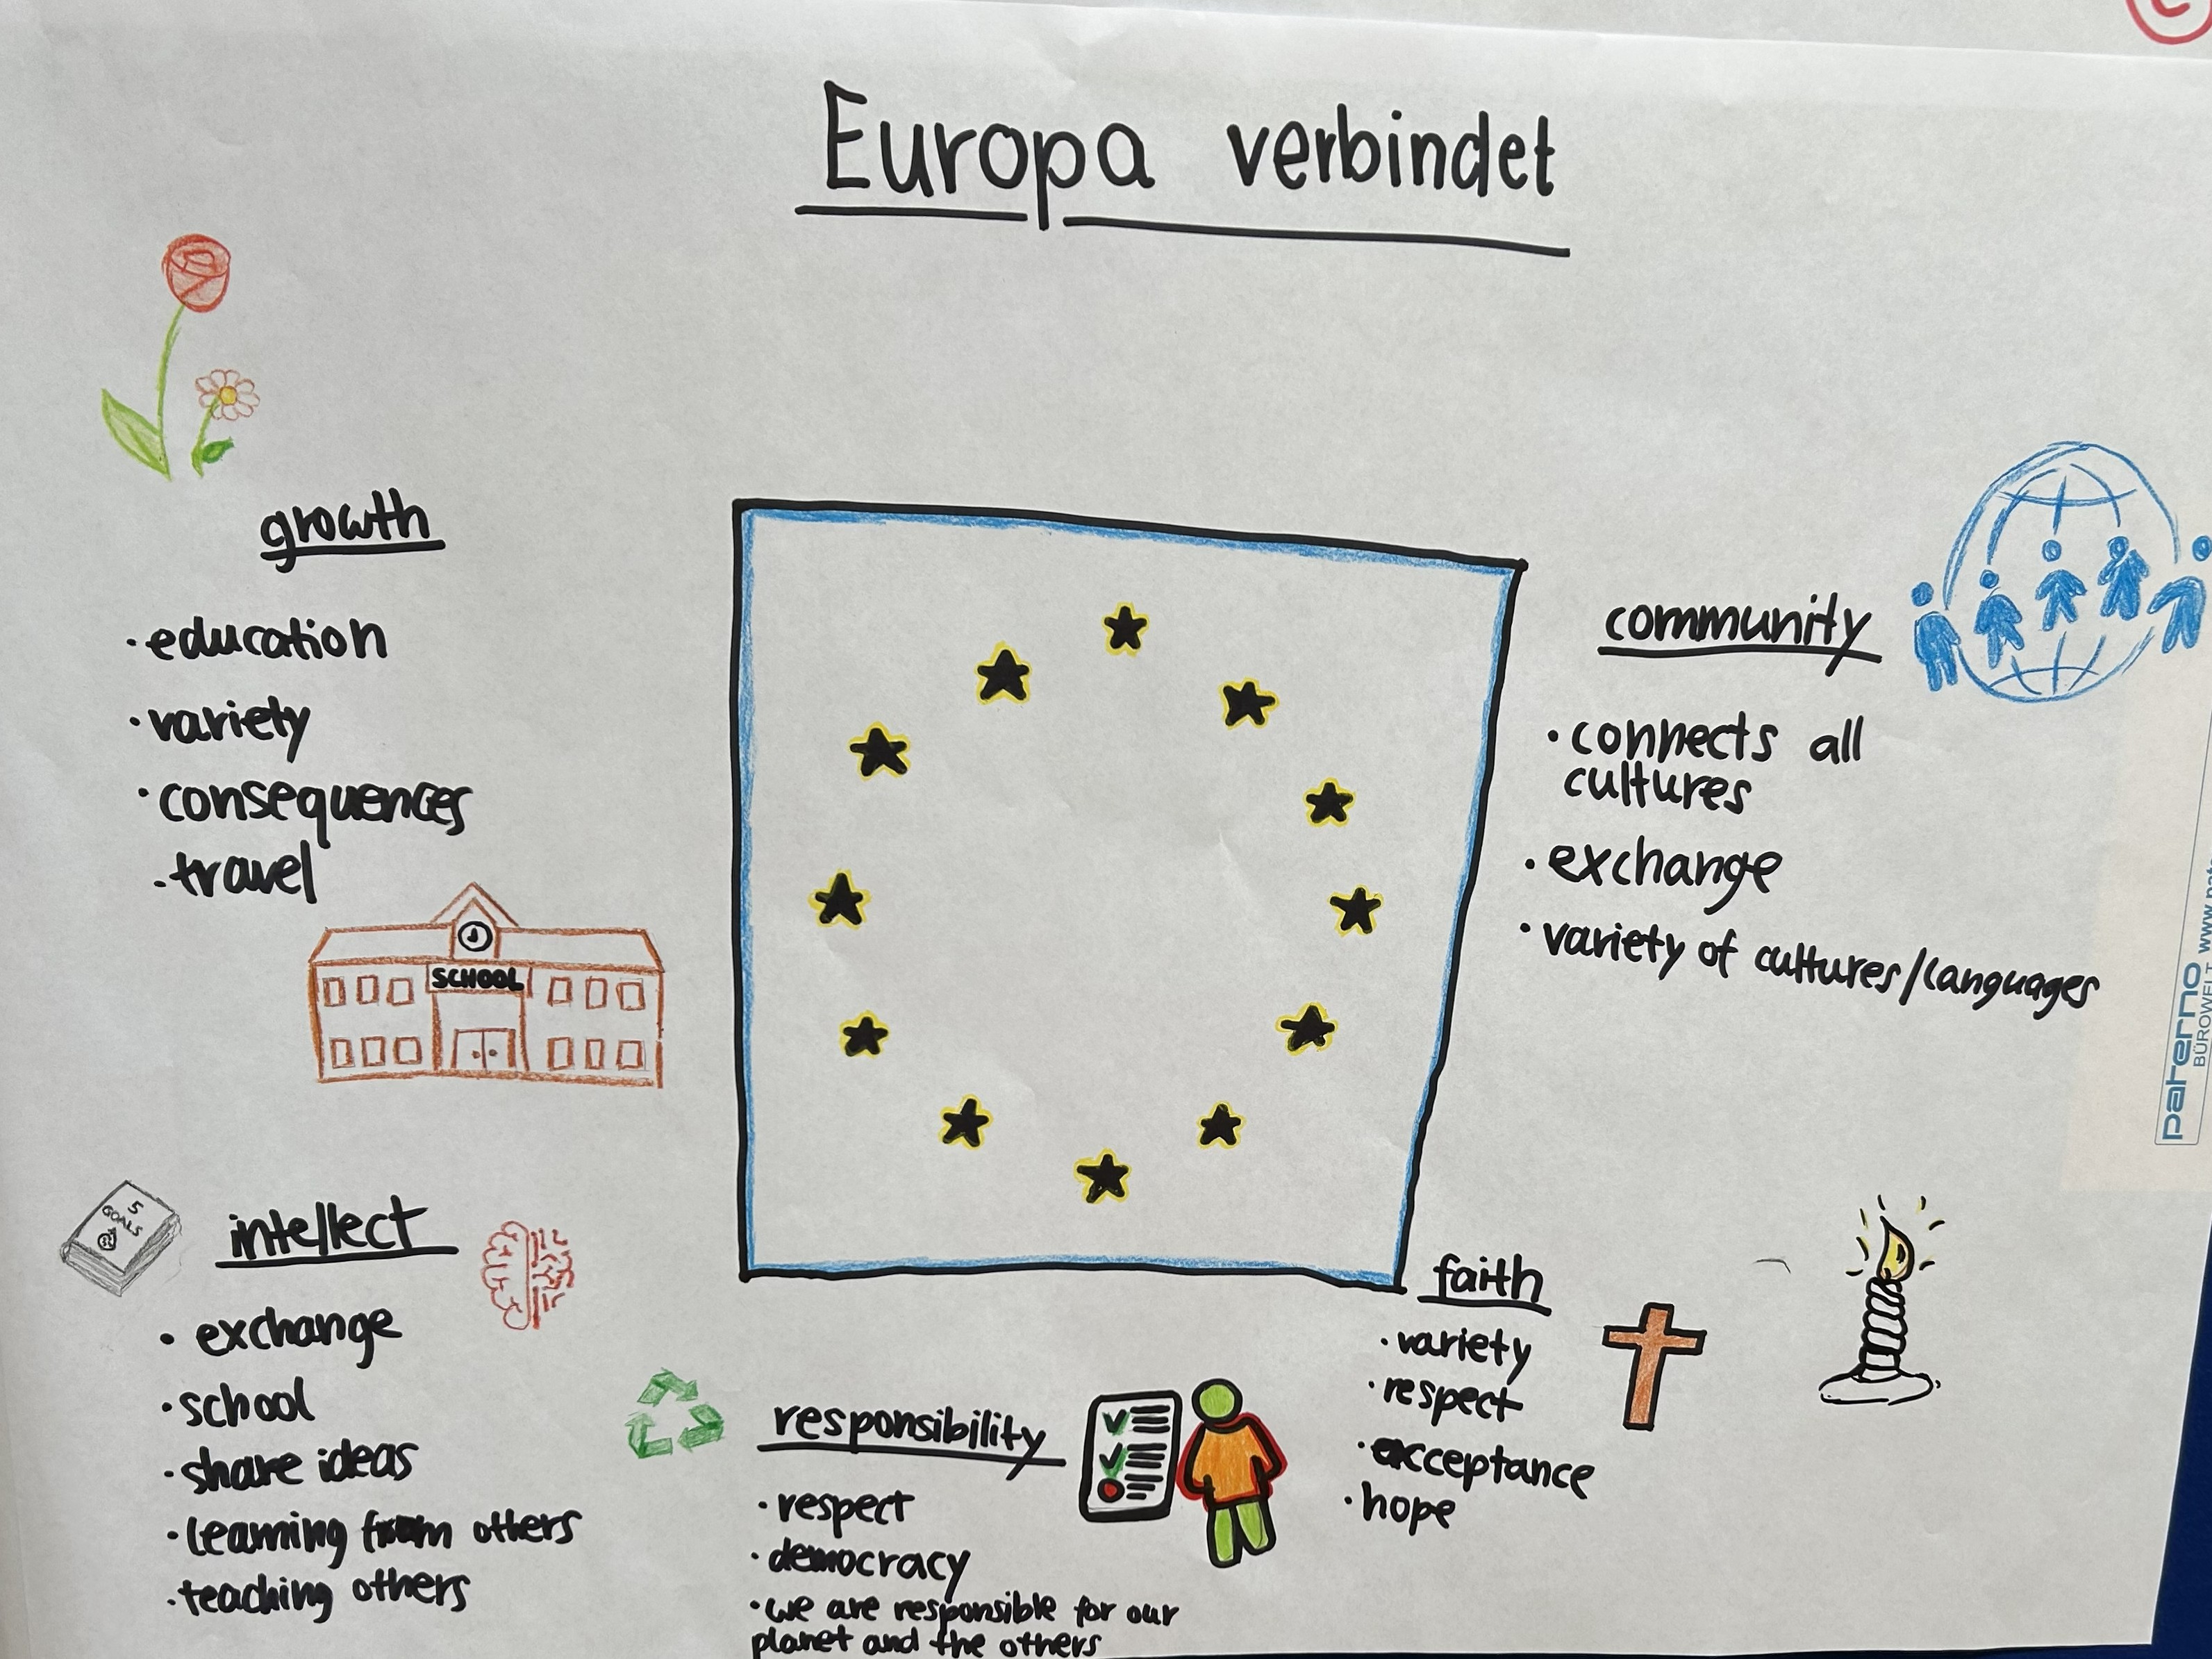 Europa verbindet
growth
· education
· variety
· consequences
· travel
SCHOOL
community
· connects all
cultures
· exchange
· variety of cultures/languages
paterno
BÜROWELT
5
GOALS
intellect
· exchange
· school
· share ideas
· learning from others
· teaching others
responsibility
· respect
· democracy
· we are responsible for our
planet and the others
faith
· variety
· respect
· acceptance
· hope